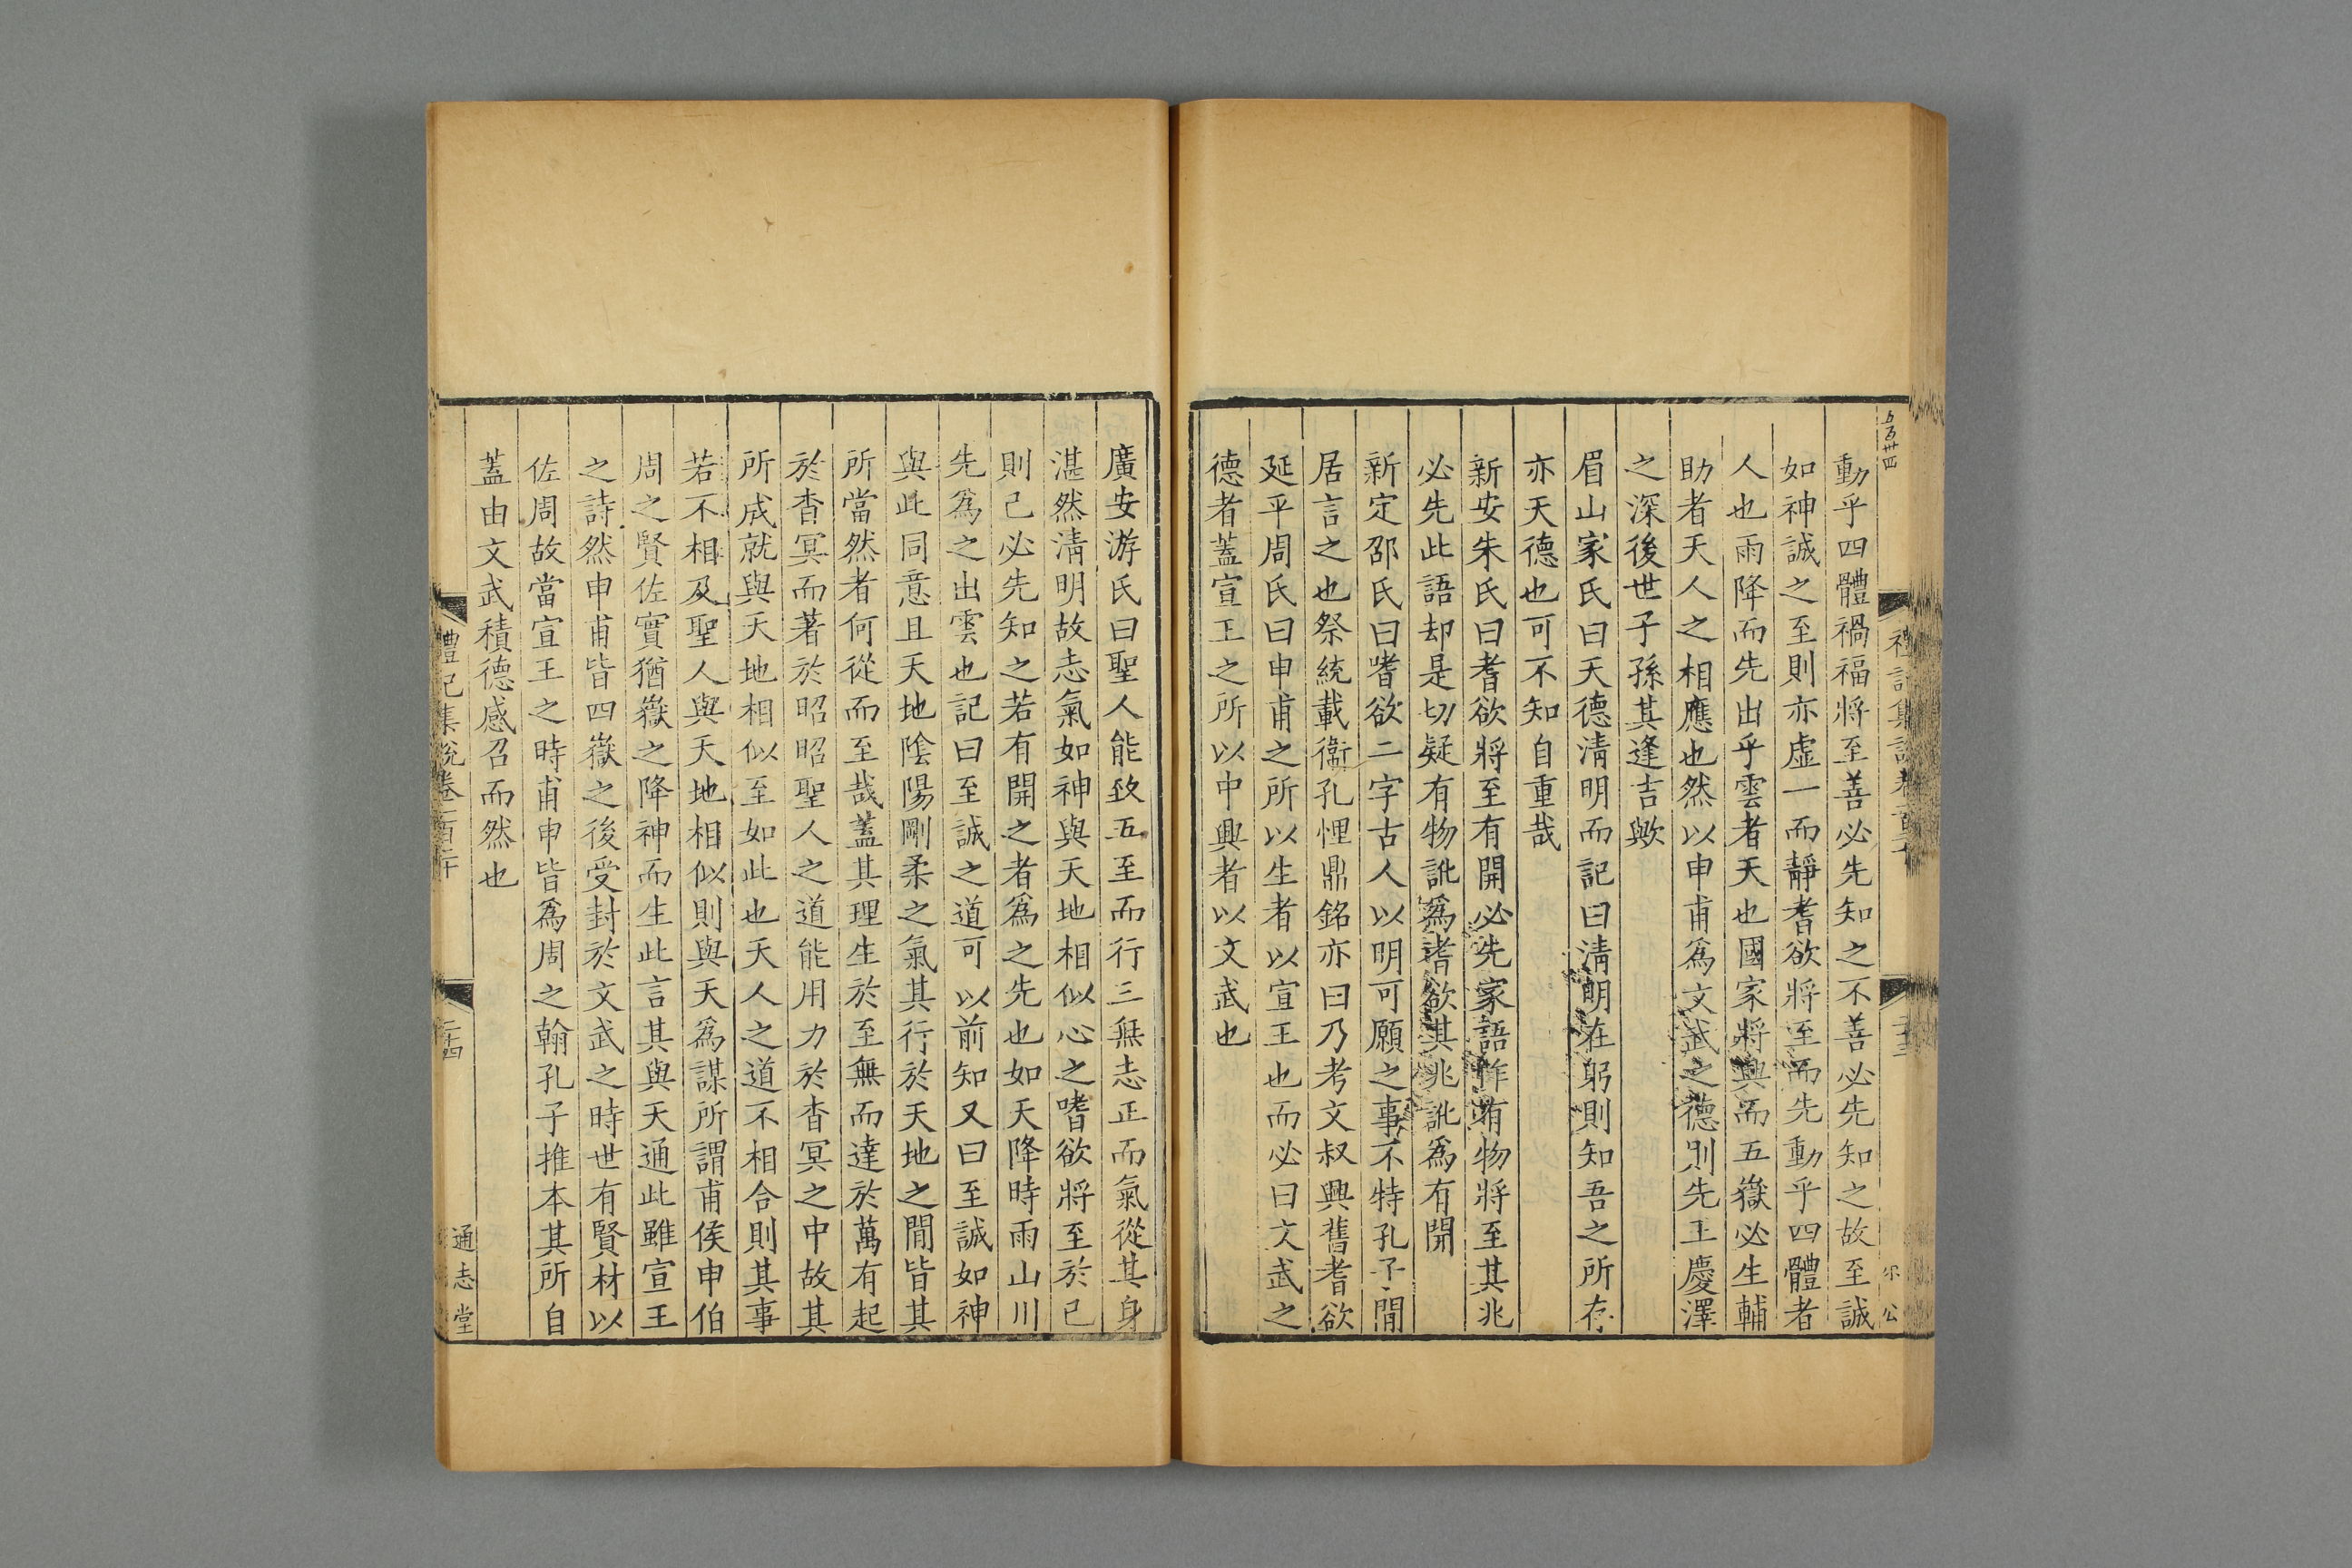 五百卅四
動乎四體禍福將至善必先知之不善必先知之故至誠
如神誠之至則亦虛一而靜耆欲將至而先動乎四體者
人也雨降而先出乎雲者天也國家將興而五嶽必生輔
助者天人之相應也然以申甫爲文武之德則先王慶澤
之深後世子孫其逢吉歟
眉山家氏曰天德淸明而記曰淸明在躬則知吾之所存
亦天德也可不知自重哉
新安朱氏曰耆欲將至有開必先家語作有物將至其兆
必先此語却是切疑有物訛爲耆欲其兆訛爲有開
新定邵氏曰嗜欲二字古人以明可願之事不特孔子閒
居言之也祭統載衞孔悝鼎銘亦曰乃考文叔興舊耆欲
延平周氏曰申甫之所以生者以宣王也而必曰文武之
德者蓋宣王之所以中興者以文武也
廣安游氏曰聖人能致五至而行三無志正而氣從其身
湛然淸明故志氣如神與天地相似心之嗜欲將至於已
則已必先知之若有開之者爲之先也如天降時雨山川
先爲之出雲也記曰至誠之道可以前知又曰至誠如神
與此同意且天地陰陽剛柔之氣其行於天地之閒皆其
所當然者何從而至哉蓋其理生於至無而達於萬有起
於杳冥而著於昭昭聖人之道能用力於杳冥之中故其
所成就與天地相似至如此也天人之道不相合則其事
若不相及聖人與天地相似則與天爲謀所謂甫侯申伯
周之賢佐實猶嶽之降神而生此言其與天通此雖宣王
之詩然申甫皆四嶽之後受封於文武之時世有賢材以
佐周故當宣王之時甫申皆爲周之翰孔子推本其所自
蓋由文武積德感召而然也
禮記集說卷一百二十
二十四
通志堂